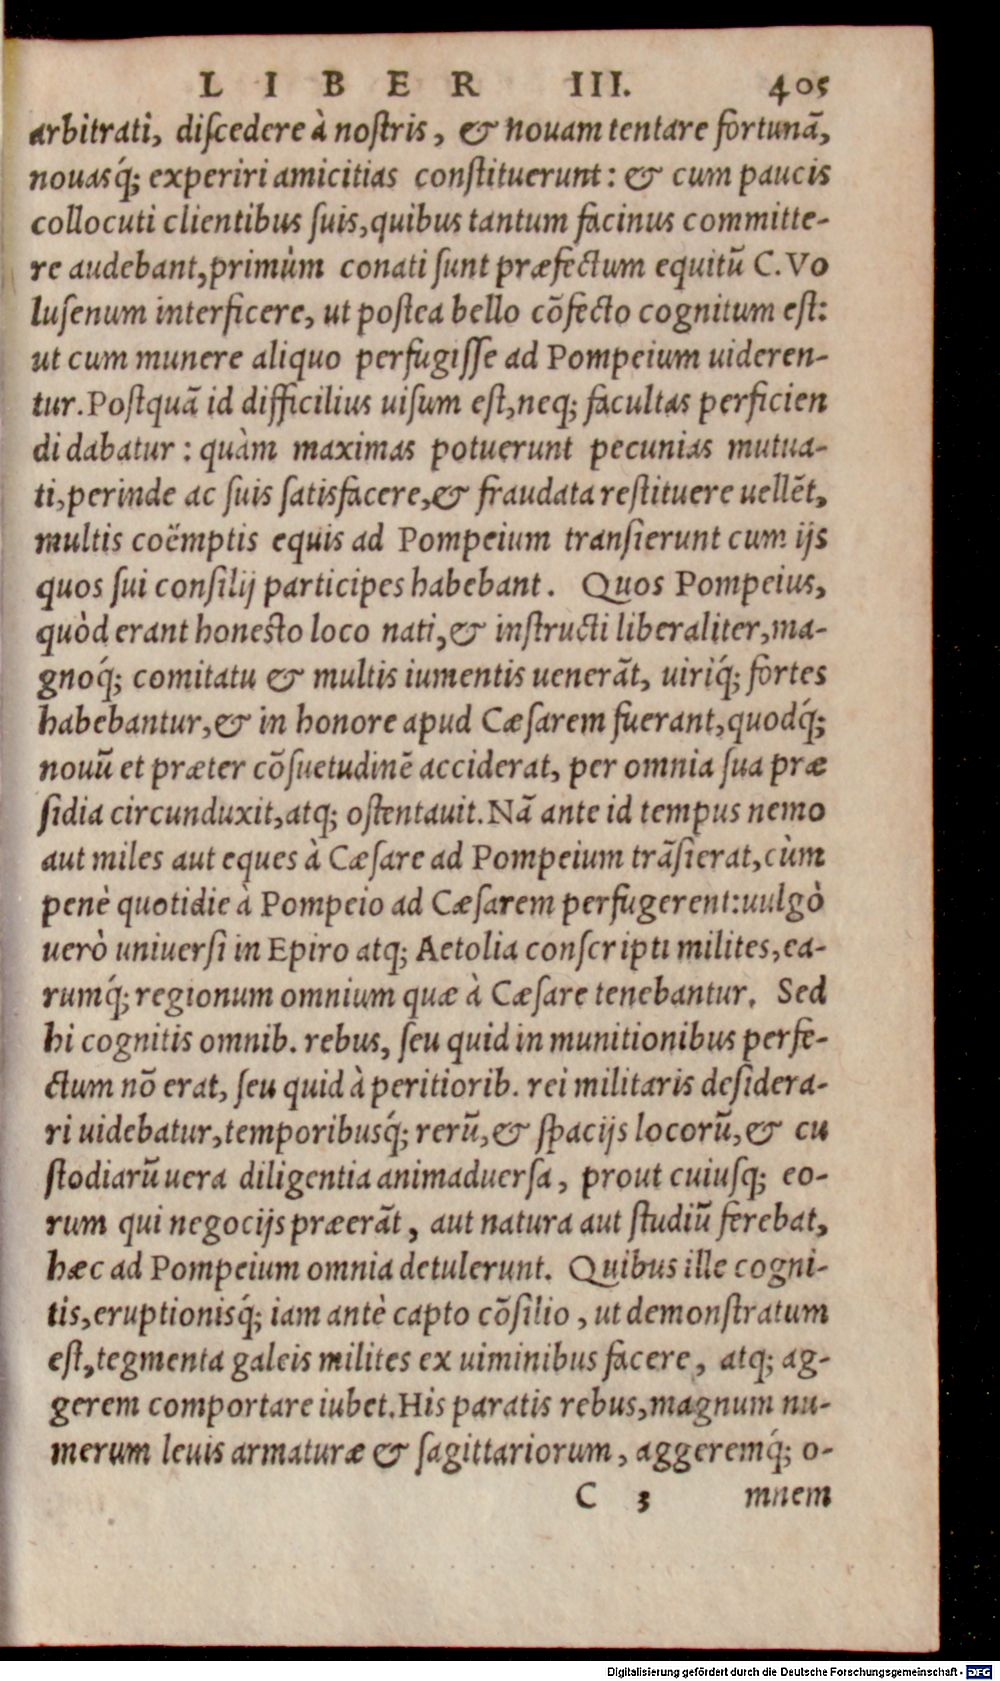 LIBER III. 405
arbitrati, discedere à nostris, & nouam tentare fortunā,
nouasq́; experiri amicitias constituerunt: & cum paucis
collocuti clientibus suis, quibus tantum facinus committe-
re audebant, primùm conati sunt præfectum equitū C. Vo
lusenum interficere, ut postea bello cōfecto cognitum est:
ut cum munere aliquo perfugisse ad Pompeium uideren-
tur. Postquā id difficilius uisum est, neq; facultas perficien
di dabatur: quàm maximas potuerunt pecunias mutua-
ti, perinde ac suis satisfacere, & fraudata restituere uellēt,
multis coëmptis equis ad Pompeium transierunt cum ijs
quos sui consilij participes habebant. Quos Pompeius,
quòd erant honesto loco nati, & instructi liberaliter, ma-
gnoq́; comitatu & multis iumentis uenerāt, uiriq́; fortes
habebantur, & in honore apud Cæsarem fuerant, quodq́;
nouū et præter cōsuetudinē acciderat, per omnia sua præ
sidia circunduxit, atq; ostentauit. Nā ante id tempus nemo
aut miles aut eques à Cæsare ad Pompeium trāsierat, cùm
penè quotidie à Pompeio ad Cæsarem perfugerent: uulgò
uerò uniuersi in Epiro atq; Aetolia conscripti milites, ea-
rumq́; regionum omnium quæ à Cæsare tenebantur. Sed
hi cognitis omnib. rebus, seu quid in munitionibus perfe-
ctum nō erat, seu quid à peritiorib. rei militaris desidera-
ri uidebatur, temporibusq́; rerū, & spacijs locorū, & cu
stodiarū uera diligentia animaduersa, prout cuiusq; eo-
rum qui negocijs præerāt, aut natura aut studiū ferebat,
hæc ad Pompeium omnia detulerunt. Quibus ille cogni-
tis, eruptionisq́; iam antè capto cōsilio, ut demonstratum
est, tegmenta galeis milites ex uiminibus facere, atq; ag-
gerem comportare iubet. His paratis rebus, magnum nu-
merum leuis armaturæ & sagittariorum, aggeremq́; o-
C 3 mnem
Digitalisierung gefördert durch die Deutsche Forschungsgemeinschaft - DFG